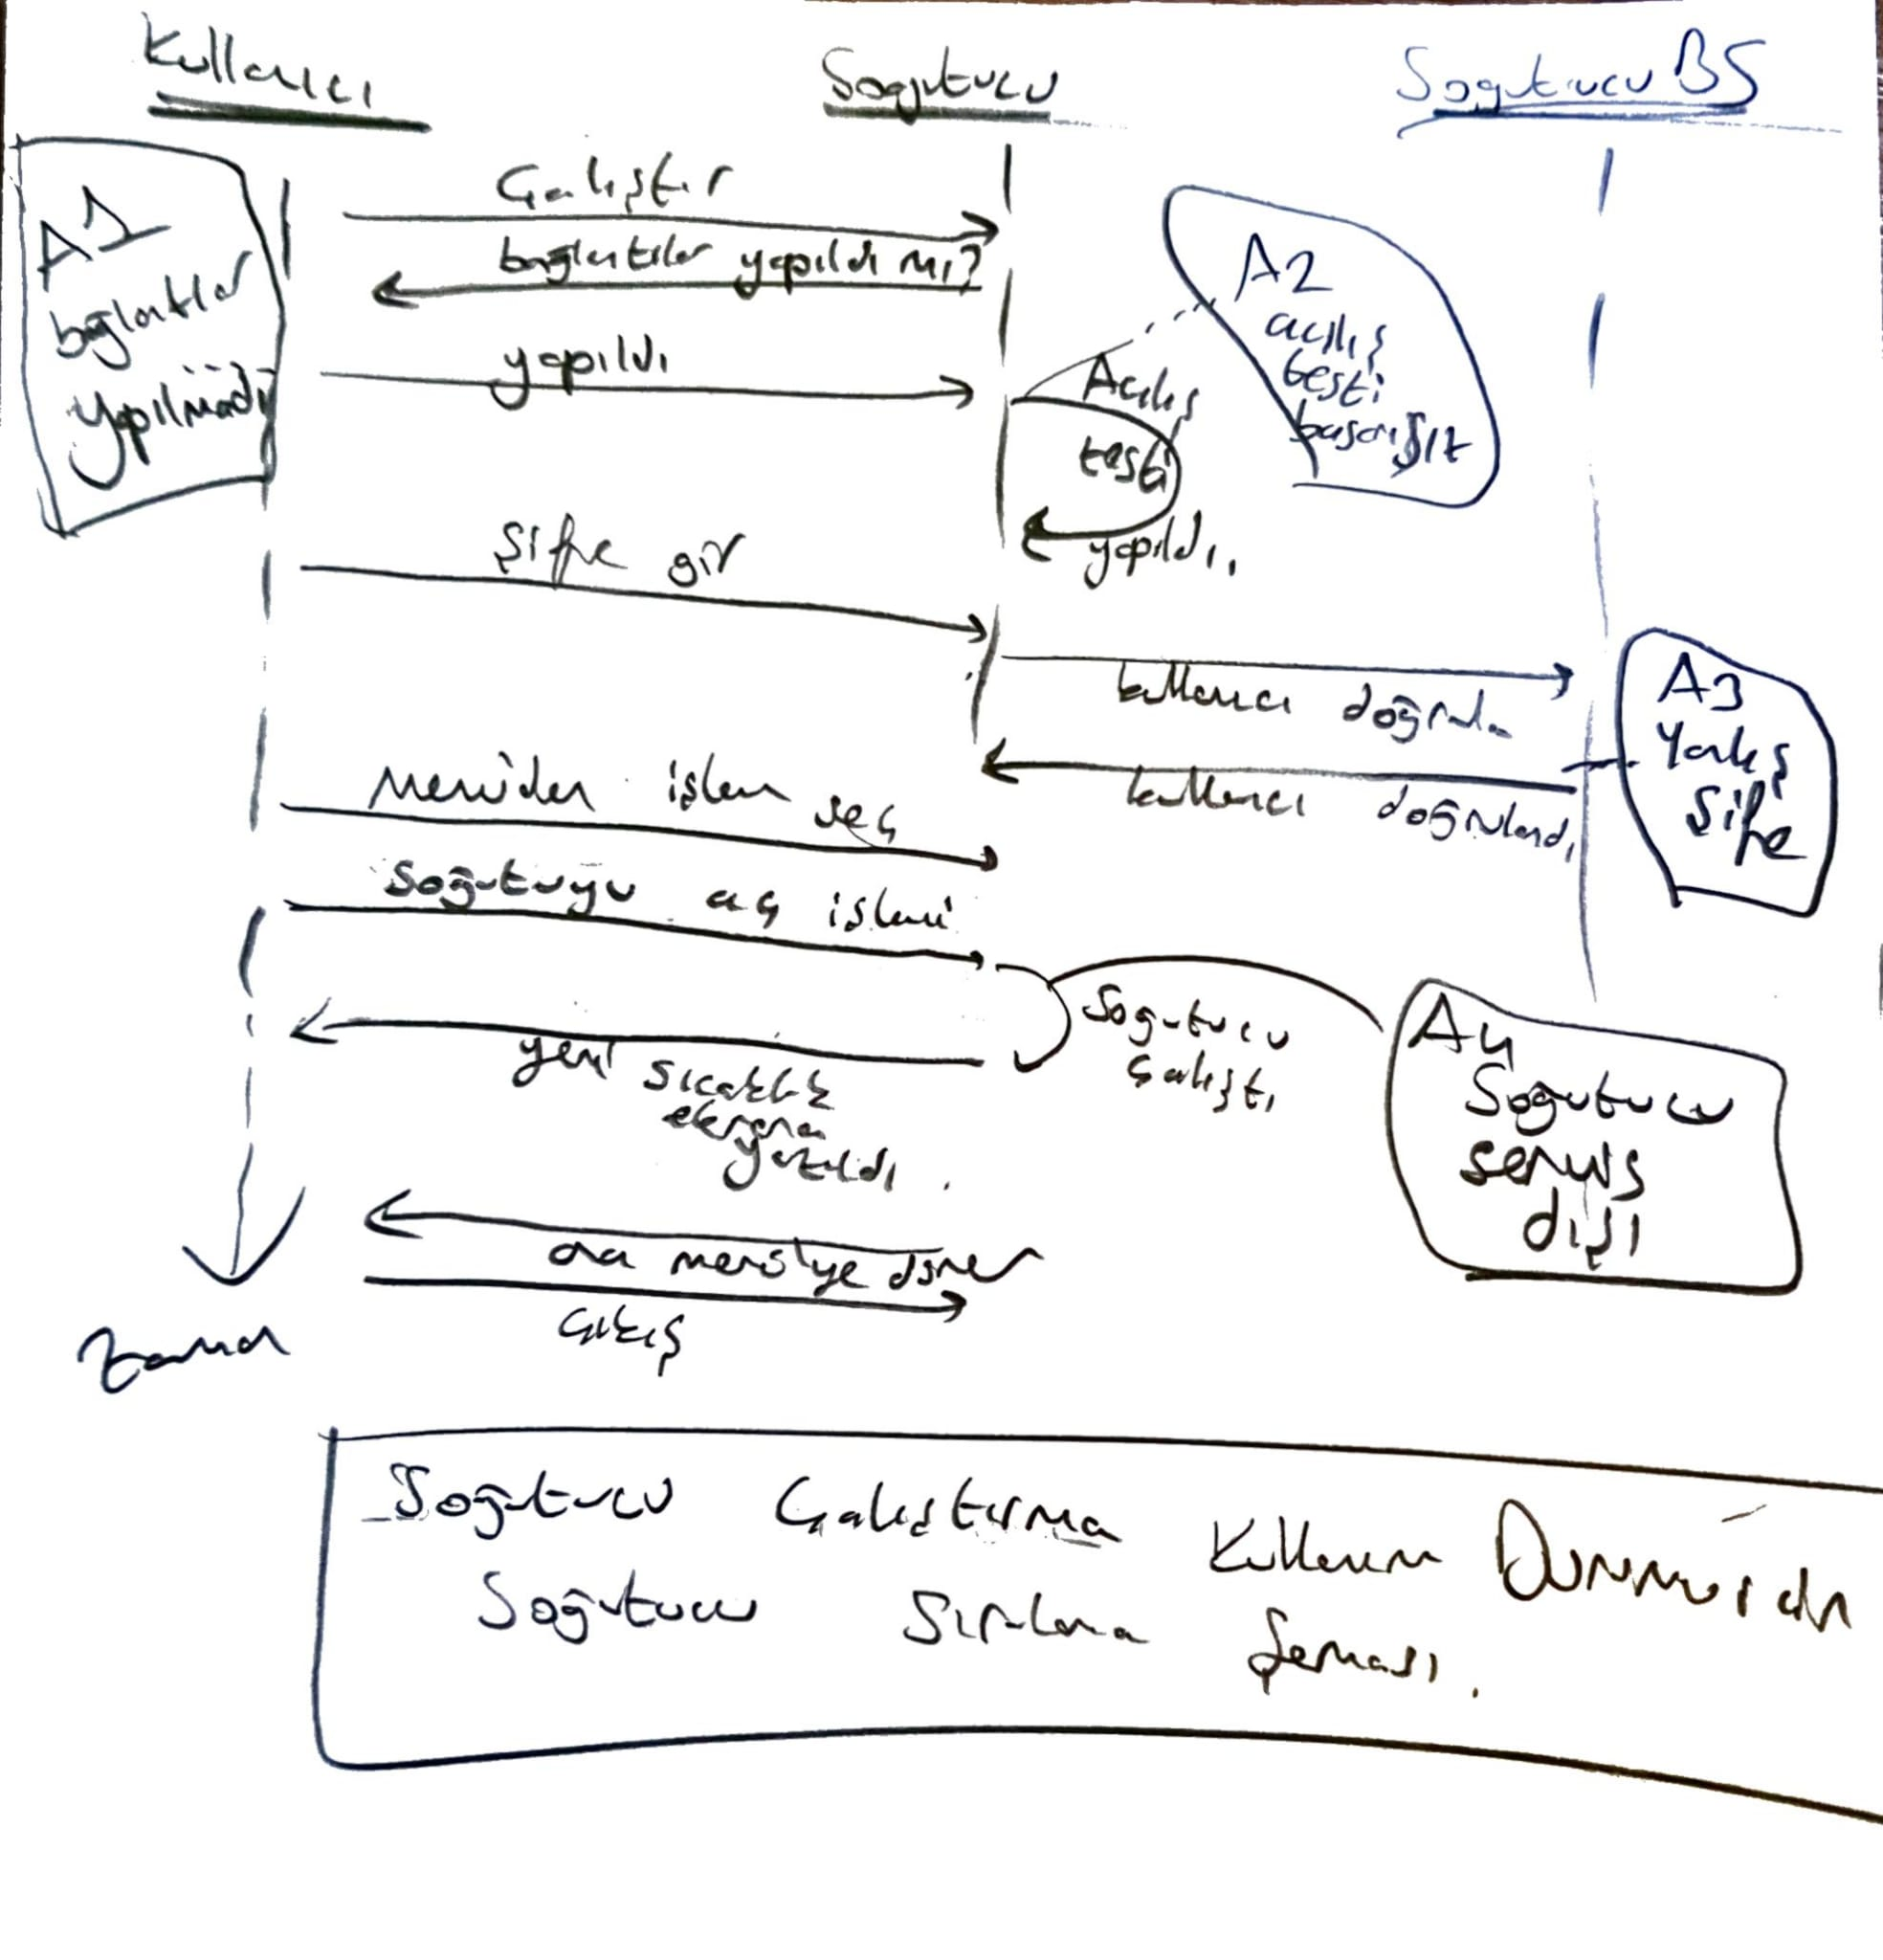 Kullanıcı
Soğutucu
Soğutucu BS
A1
bağlantılar
yapılmadı
Çalıştır
bağlantılar yapıldı mı?
yapıldı
A2
açılış
testi
başarısız
Açılış
testi
yapıldı.
Şifre gir
kullanıcı doğrula
kullanıcı doğrulandı
A3
Yanlış
Şifre
Menüden işlem seç
Soğutucuyu aç işlemi
Soğutucu
çalıştı
yeni sıcaklık
ekrana
yazıldı.
A4
Soğutucu
servis
dışı
ana menüye döner
Çıkış
Zaman
Soğutucu Çalıştırma Kullanım Durumu için
Soğutucu Sıralama Şeması.